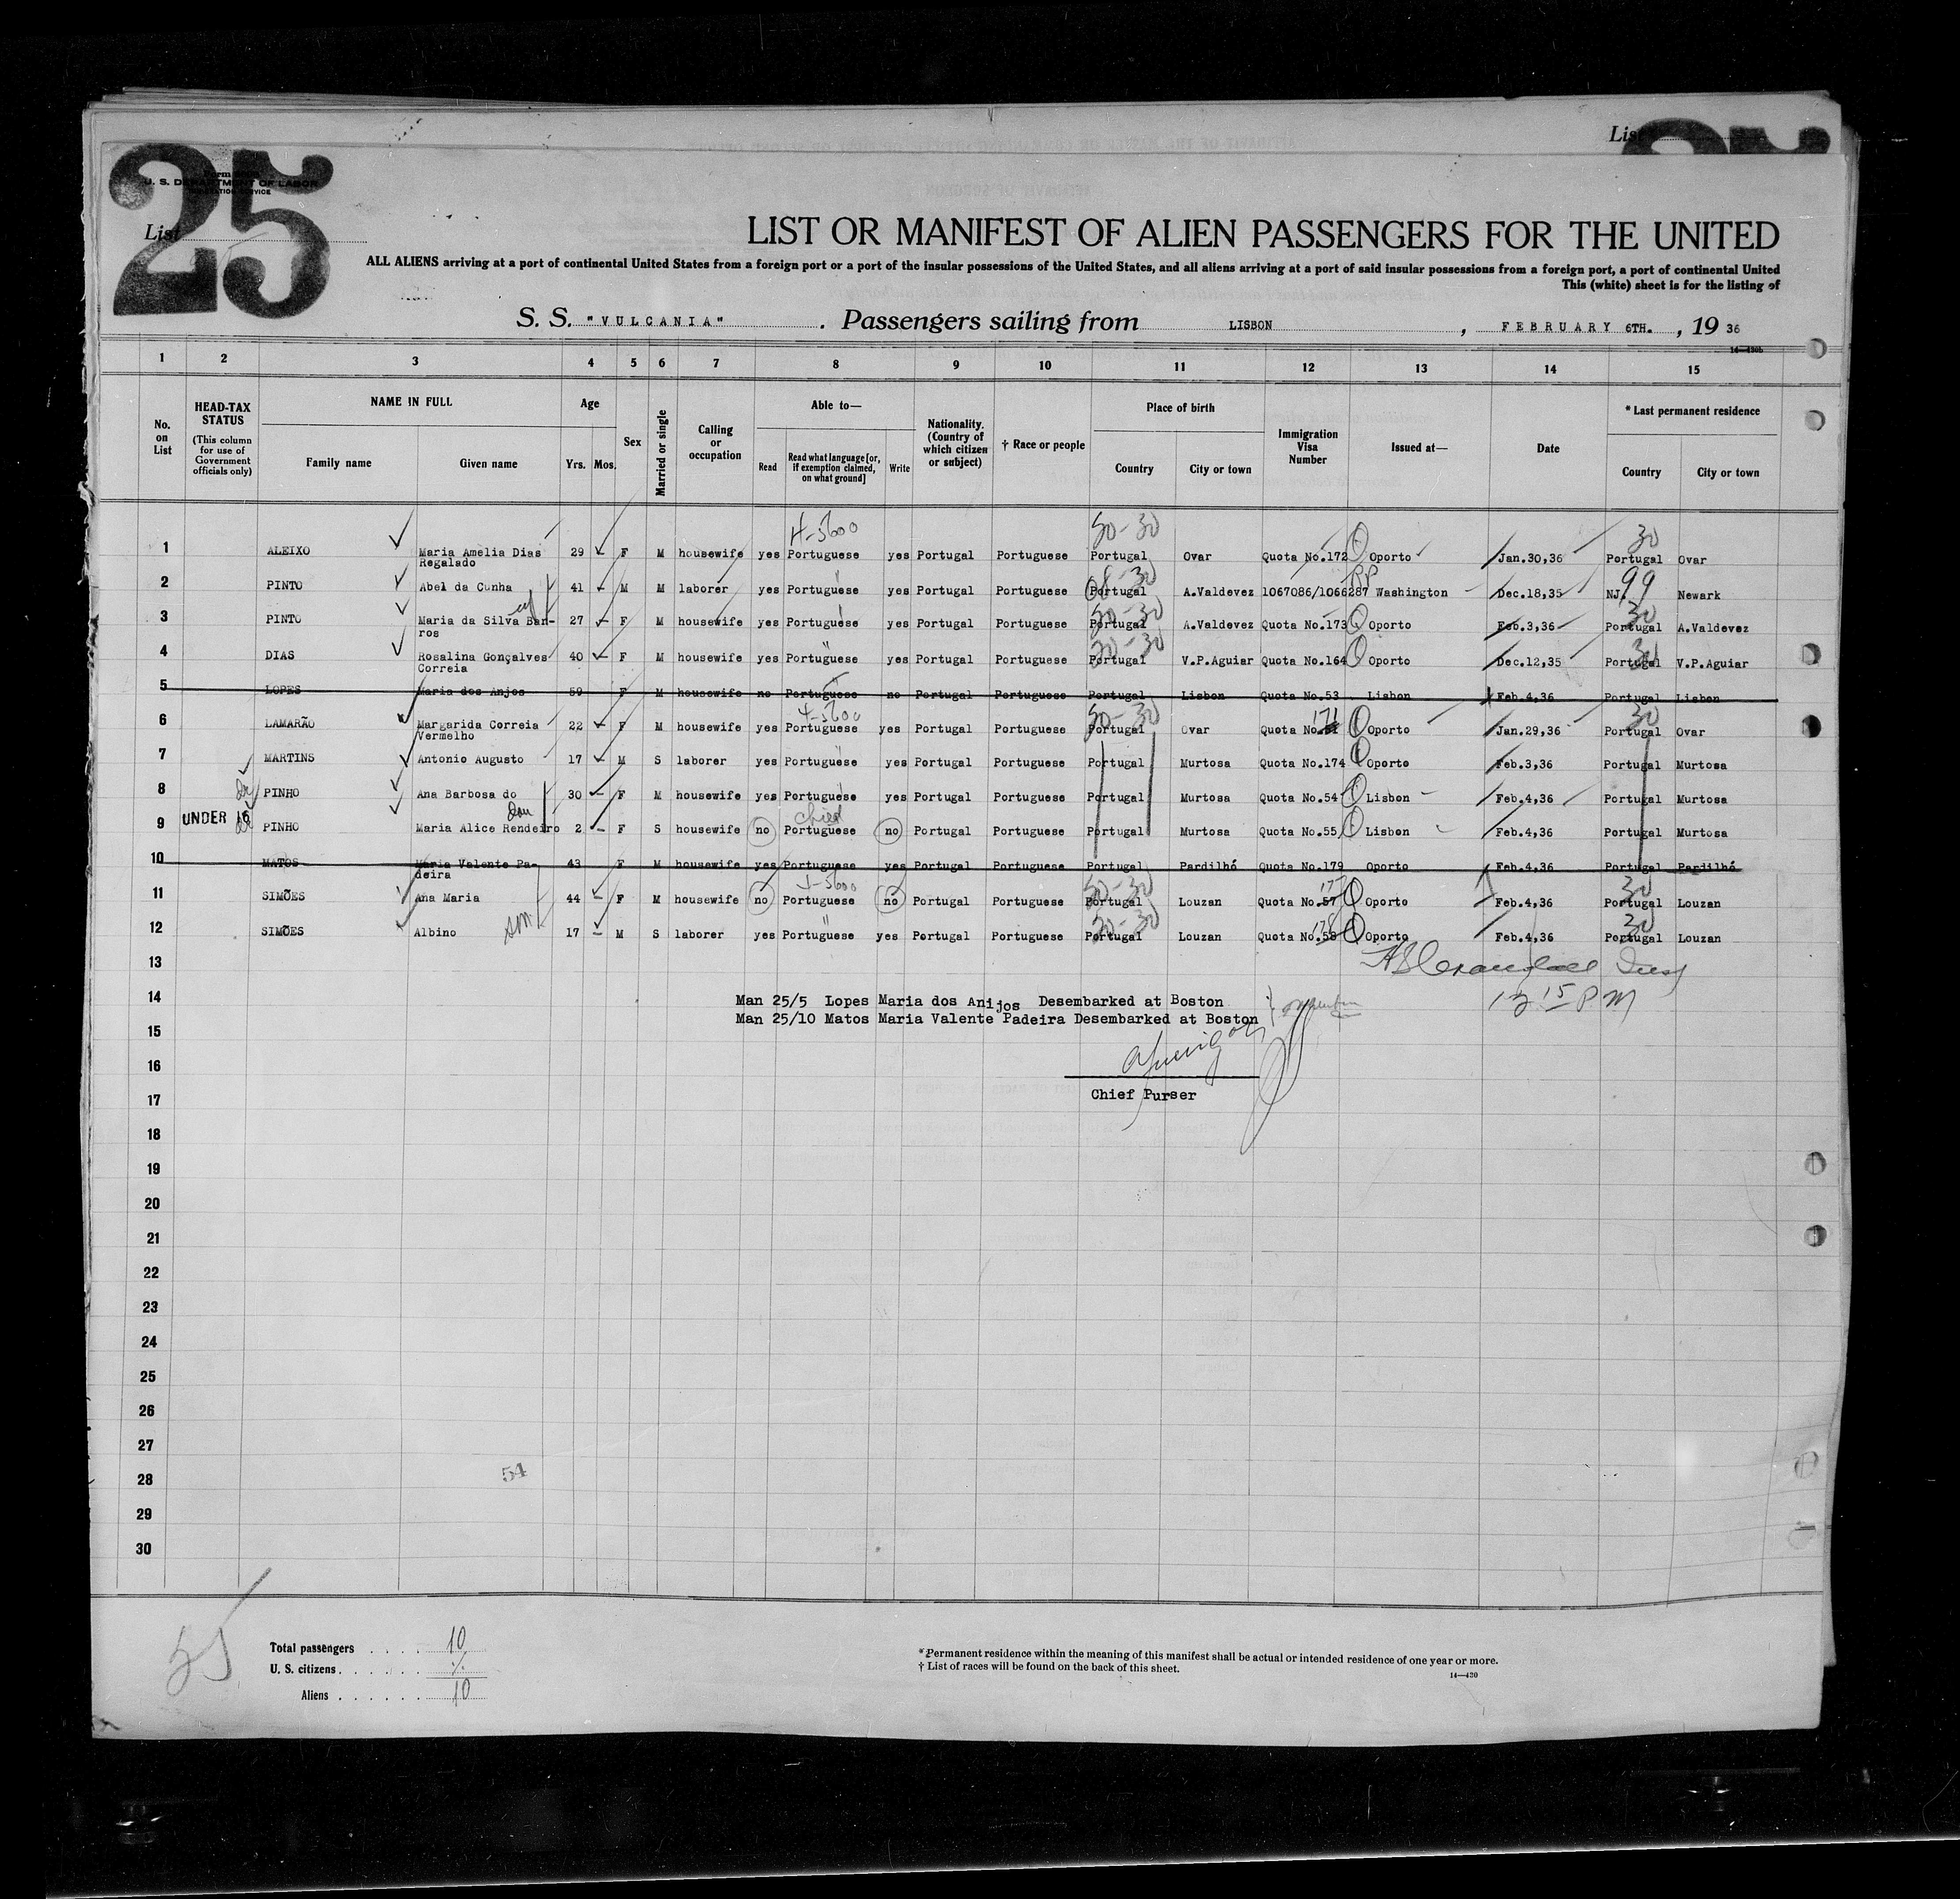 25
Form 500
U. S. DEPARTMENT OF LABOR
IMMIGRATION SERVICE
List
List
LIST OR MANIFEST OF ALIEN PASSENGERS FOR THE UNITED
ALL ALIENS arriving at a port of continental United States from a foreign port or a port of the insular possessions of the United States, and all aliens arriving at a port of said insular possessions from a foreign port, a port of continental United
This (white) sheet is for the listing of
S. S. "VULCANIA". Passengers sailing from LISBON, FEBRUARY 6TH., 19 36
1 2 3 4 5 6 7 8 9 10 11 12 13 14 15
No. on List HEAD-TAX STATUS (This column for use of Government officials only) NAME IN FULL Family name Given name Age Yrs. Mos. Sex Married or single Calling or occupation Able to— Read Read what language [or, if exemption claimed, on what ground] Write Nationality. (Country of which citizen or subject) † Race or people Place of birth Country City or town Immigration Visa Number Issued at— Date * Last permanent residence Country City or town
4-5600 50-30 30
1 ALEIXO Maria Amelia Dias Regalado 29 F M housewife yes Portuguese yes Portugal Portuguese Portugal Ovar Quota No.172 Oporto Jan.30,36 Portugal Ovar
2 PINTO Abel da Cunha 41 M M laborer yes Portuguese yes Portugal Portuguese Portugal A.Valdevez 1067086/1066287 Washington Dec.18,35 NJ. 99 Newark
3 PINTO Maria da Silva Barros 27 F M housewife yes Portuguese yes Portugal Portuguese Portugal A.Valdevez Quota No.173 Oporto Feb.3,36 Portugal A.Valdevez
4 DIAS Rosalina Gonçalves Correia 40 F M housewife yes Portuguese yes Portugal Portuguese Portugal V.P.Aguiar Quota No.164 Oporto Dec.12,35 Portugal V.P.Aguiar
5 LOPES Maria dos Anjos 59 F M housewife no Portuguese no Portugal Portuguese Portugal Lisbon Quota No.53 Lisbon Feb.4,36 Portugal Lisbon
4-5600 171 50-30 30
6 LAMARÃO Margarida Correia Vermelho 22 F M housewife yes Portuguese yes Portugal Portuguese Portugal Ovar Quota No. Oporto Jan.29,36 Portugal Ovar
7 MARTINS Antonio Augusto 17 M S laborer yes Portuguese yes Portugal Portuguese Portugal Murtosa Quota No.174 Oporto Feb.3,36 Portugal Murtosa
8 PINHO Ana Barbosa do 30 F M housewife yes Portuguese yes Portugal Portuguese Portugal Murtosa Quota No.54 Lisbon Feb.4,36 Portugal Murtosa
UNDER 16 Dau child
9 PINHO Maria Alice Rendeiro 2 F S housewife no Portuguese no Portugal Portuguese Portugal Murtosa Quota No.55 Lisbon Feb.4,36 Portugal Murtosa
10 MATOS Maria Valente Padeira 43 F M housewife yes Portuguese yes Portugal Portuguese Portugal Pardilhó Quota No.179 Oporto Feb.4,36 Portugal Pardilhó
50-30 30
11 SIMÕES Ana Maria 44 F M housewife no Portuguese no Portugal Portuguese Portugal Louzan Quota No.57 Oporto Feb.4,36 Portugal Louzan
12 SIMÕES Albino son 17 M S laborer yes Portuguese yes Portugal Portuguese Portugal Louzan Quota No.58 Oporto Feb.4,36 Portugal Louzan
13
14 Man 25/5 Lopes Maria dos Anijos Desembarked at Boston 12 15 P.M
Man 25/10 Matos Maria Valente Padeira Desembarked at Boston
15
16
17 Chief Purser
18
19
20
21
22
23
24
25
26
27
28 54
29
30
Total passengers 10
U. S. citizens
Aliens 10
* Permanent residence within the meaning of this manifest shall be actual or intended residence of one year or more.
† List of races will be found on the back of this sheet.
14—420